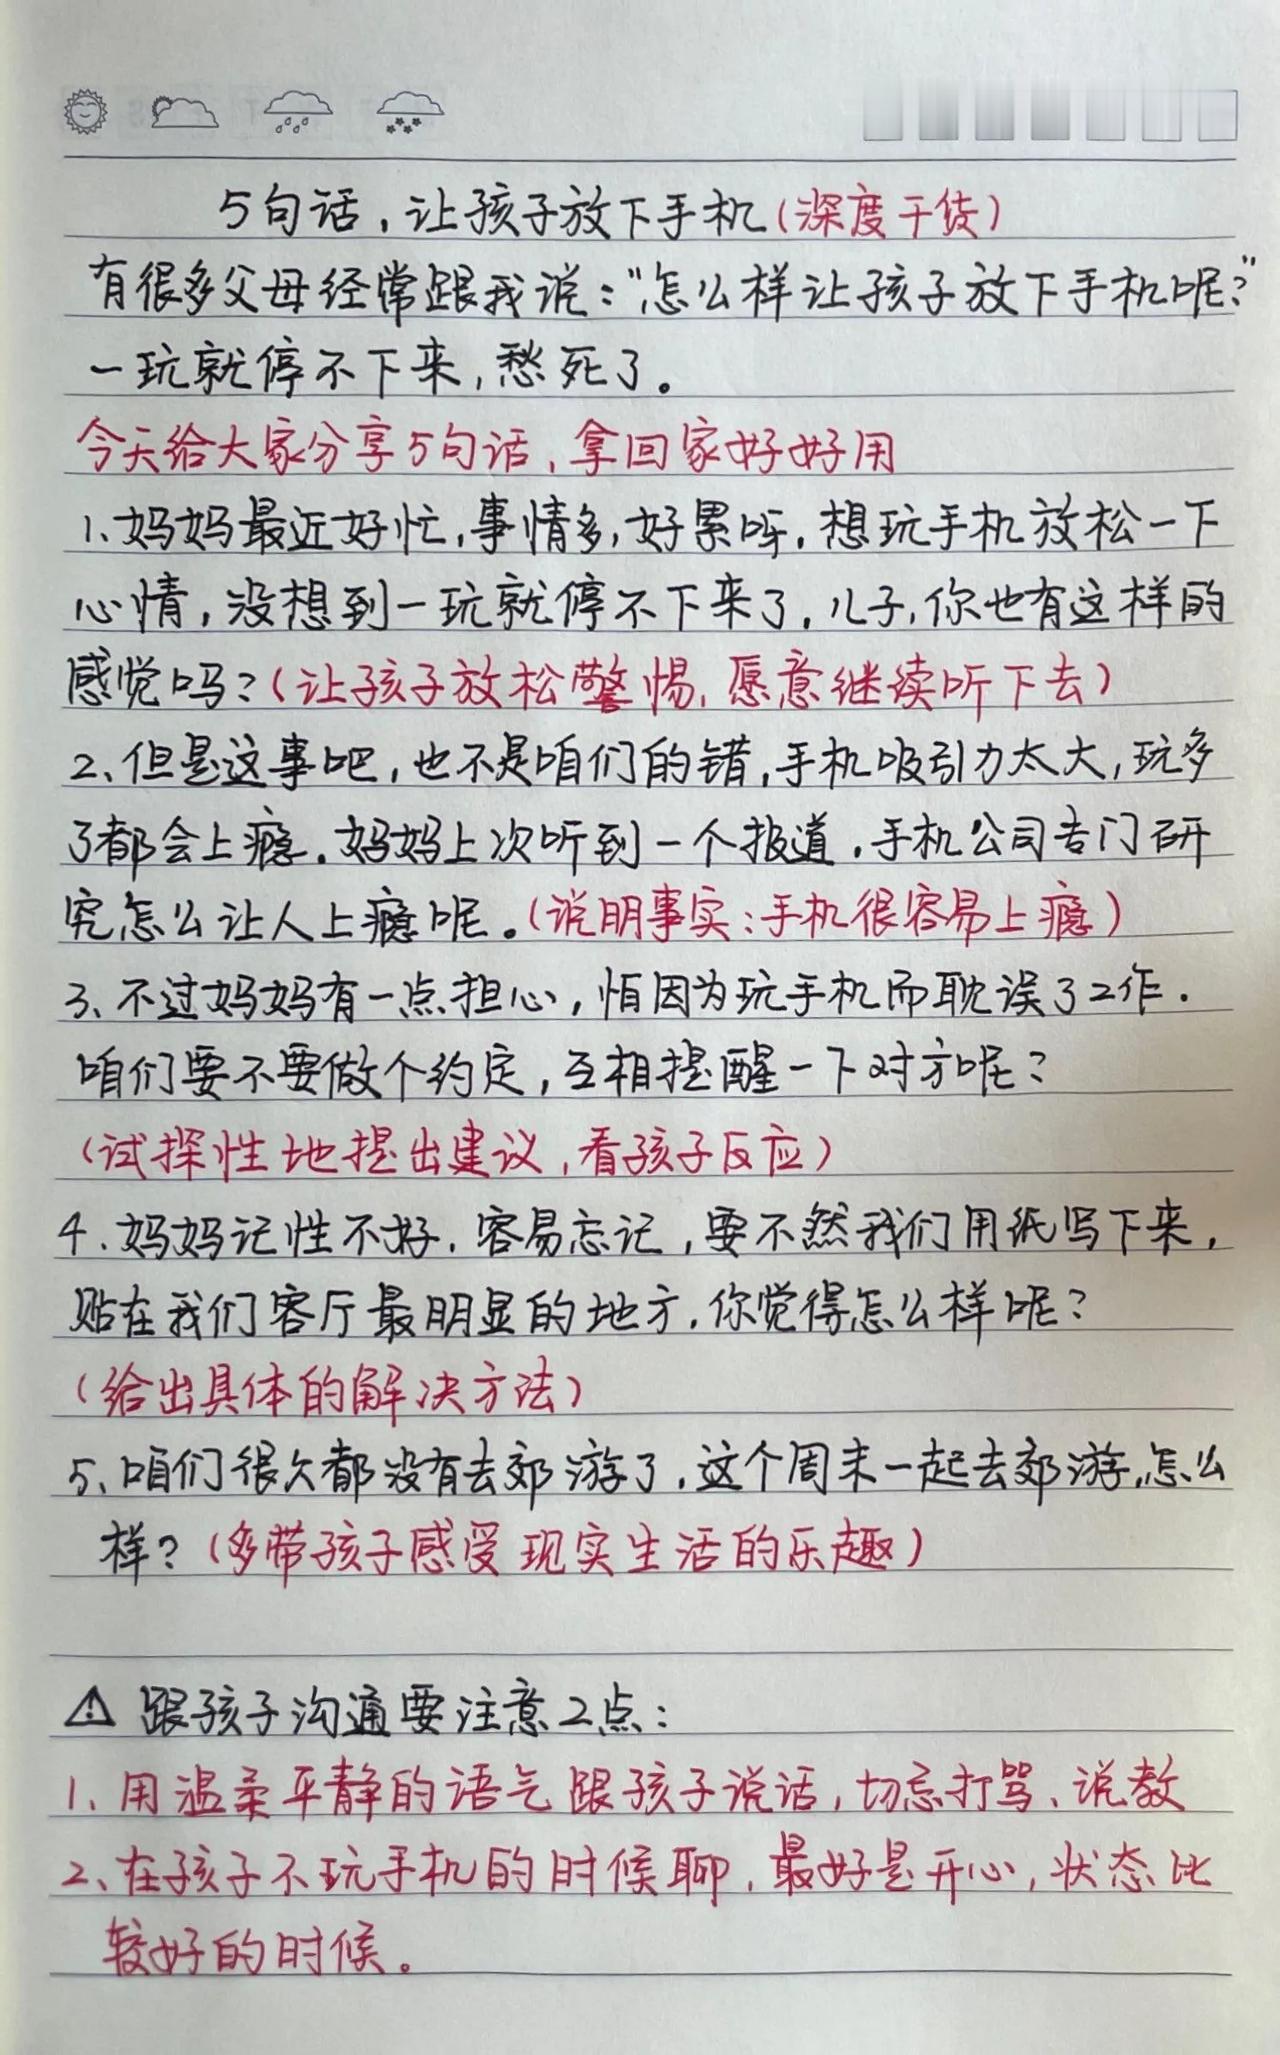 5句话,让孩子放下手机(深度干货)
有很多父母经常跟我说:“怎么样让孩子放下手机呢?”
一玩就停不下来,愁死了。
今天给大家分享5句话,拿回家好好用
1、妈妈最近好忙,事情多,好累呀.想玩手机放松一下
心情,没想到一玩就停不下来了.儿子,你也有这样的
感觉吗?(让孩子放松警惕,愿意继续听下去)
2、但是这事吧,也不是咱们的错,手机吸引力太大,玩多
了都会上瘾.妈妈上次听到一个报道.手机公司专门研
究怎么让人上瘾呢。(说明事实:手机很容易上瘾)
3、不过妈妈有一点担心,怕因为玩手机而耽误了工作.
咱们要不要做个约定,互相提醒一下对方呢?
(试探性地提出建议,看孩子反应)
4.妈妈记性不好.容易忘记,要不然我们用纸写下来,
贴在我们客厅最明显的地方.你觉得怎么样呢?
(给出具体的解决方法)
5、咱们很久都没有去郊游了.这个周末一起去郊游,怎么
样?(多带孩子感受现实生活的乐趣)
⚠ 跟孩子沟通要注意2点:
1、用温柔平静的语气跟孩子说话,切忌打骂、说教
2、在孩子不玩手机的时候聊.最好是开心,状态比
较好的时候。